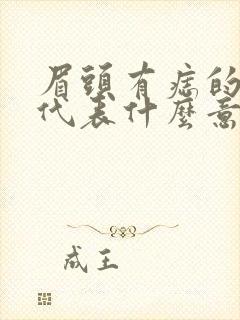 眉頭有痣的
代表什麼意
成王